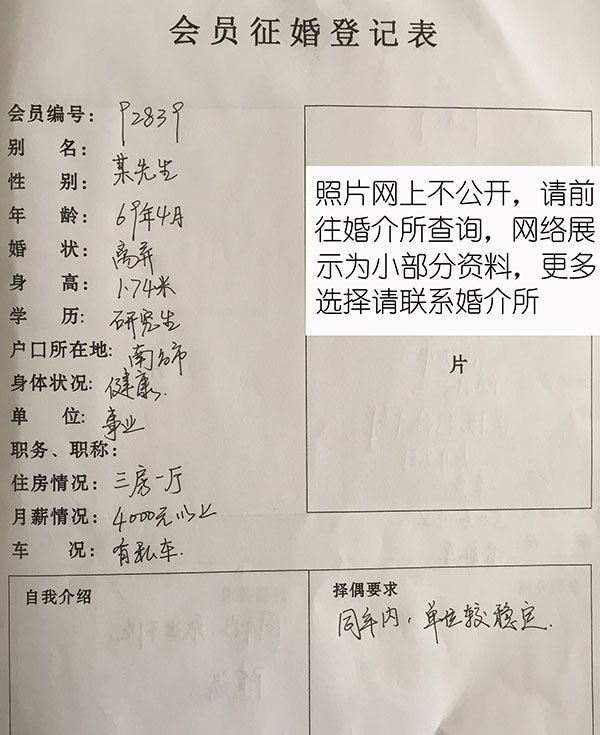 会员征婚登记表
会员编号: 92839
别 名:
性 别: 某先生
年 龄: 69年4月
婚 状: 离异
身 高: 1.74米
学 历: 研究生
户口所在地: 南宁市
身体状况: 健康.
单 位: 事业
职务、职称:
住房情况: 三房一厅
月薪情况: 4000元以上
车 况: 有私车.
照片网上不公开,请前
往婚介所查询,网络展
示为小部分资料,更多
选择请联系婚介所
片
自我介绍
择偶要求
同年内,单位较稳定.